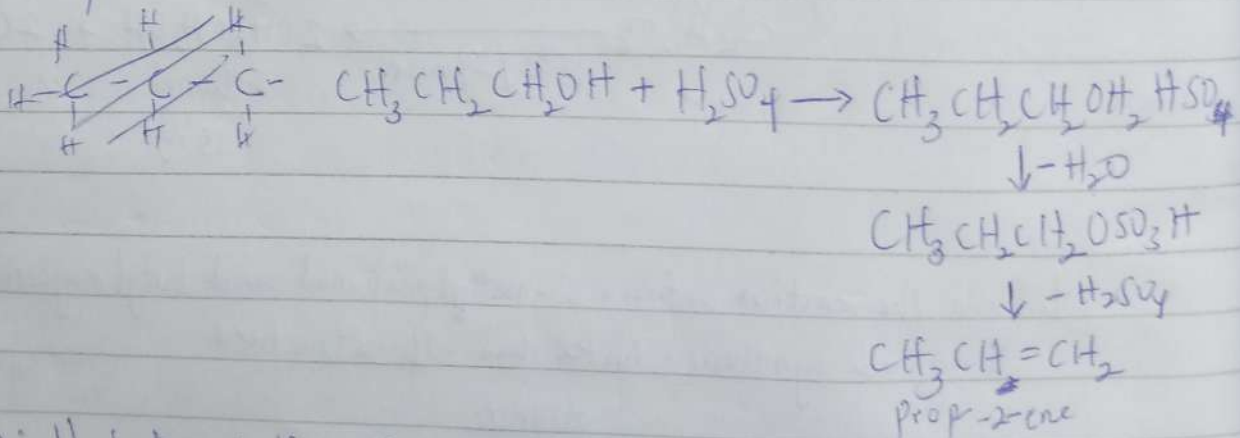 H H H
H-C - C - C- CH₃CH₂CH₂OH + H₂SO₄ → CH₃CH₂CH₂OH₂HSO₄
H H H
↓ -H₂O
CH₃CH₂CH₂OSO₃H
↓ -H₂SO₄
CH₃CH=CH₂
Prop-2-ene